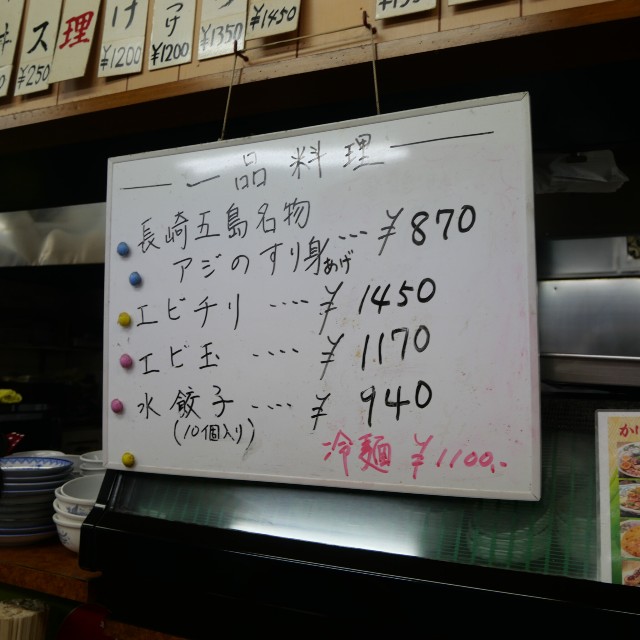 ス
¥250
理
け
¥1200
つけ
¥1200
¥1350
¥1450
一品料理
長崎五島名物
アジのすり身あげ .... ¥870
エビチリ .... ¥1450
エビ玉 .... ¥1170
水餃子 .... ¥940
(10個入り)
冷麺 ¥1100.-